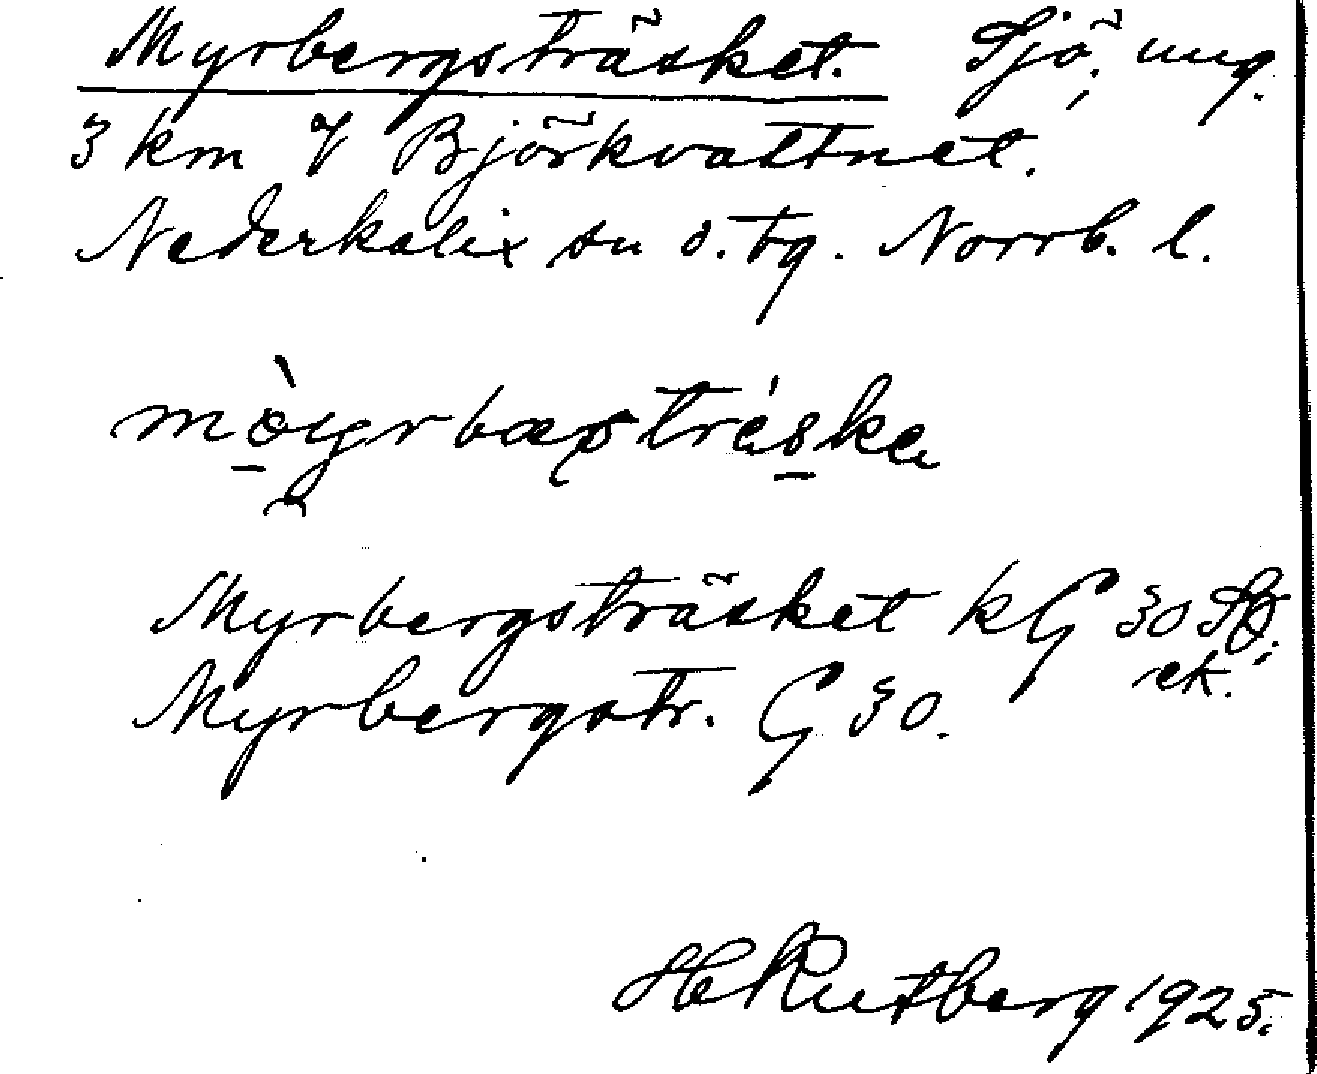 Myrbergsträsket. Sjö; ung.
3 km V Björkvattnet.
Nederkalix sn o. tg. Norrb. l.
mø̀yrbæṣträ́ske
Myrbergsträsket k G 30 Sö;
ek.
Myrbergstr. G 30.
H Rutberg 1925.